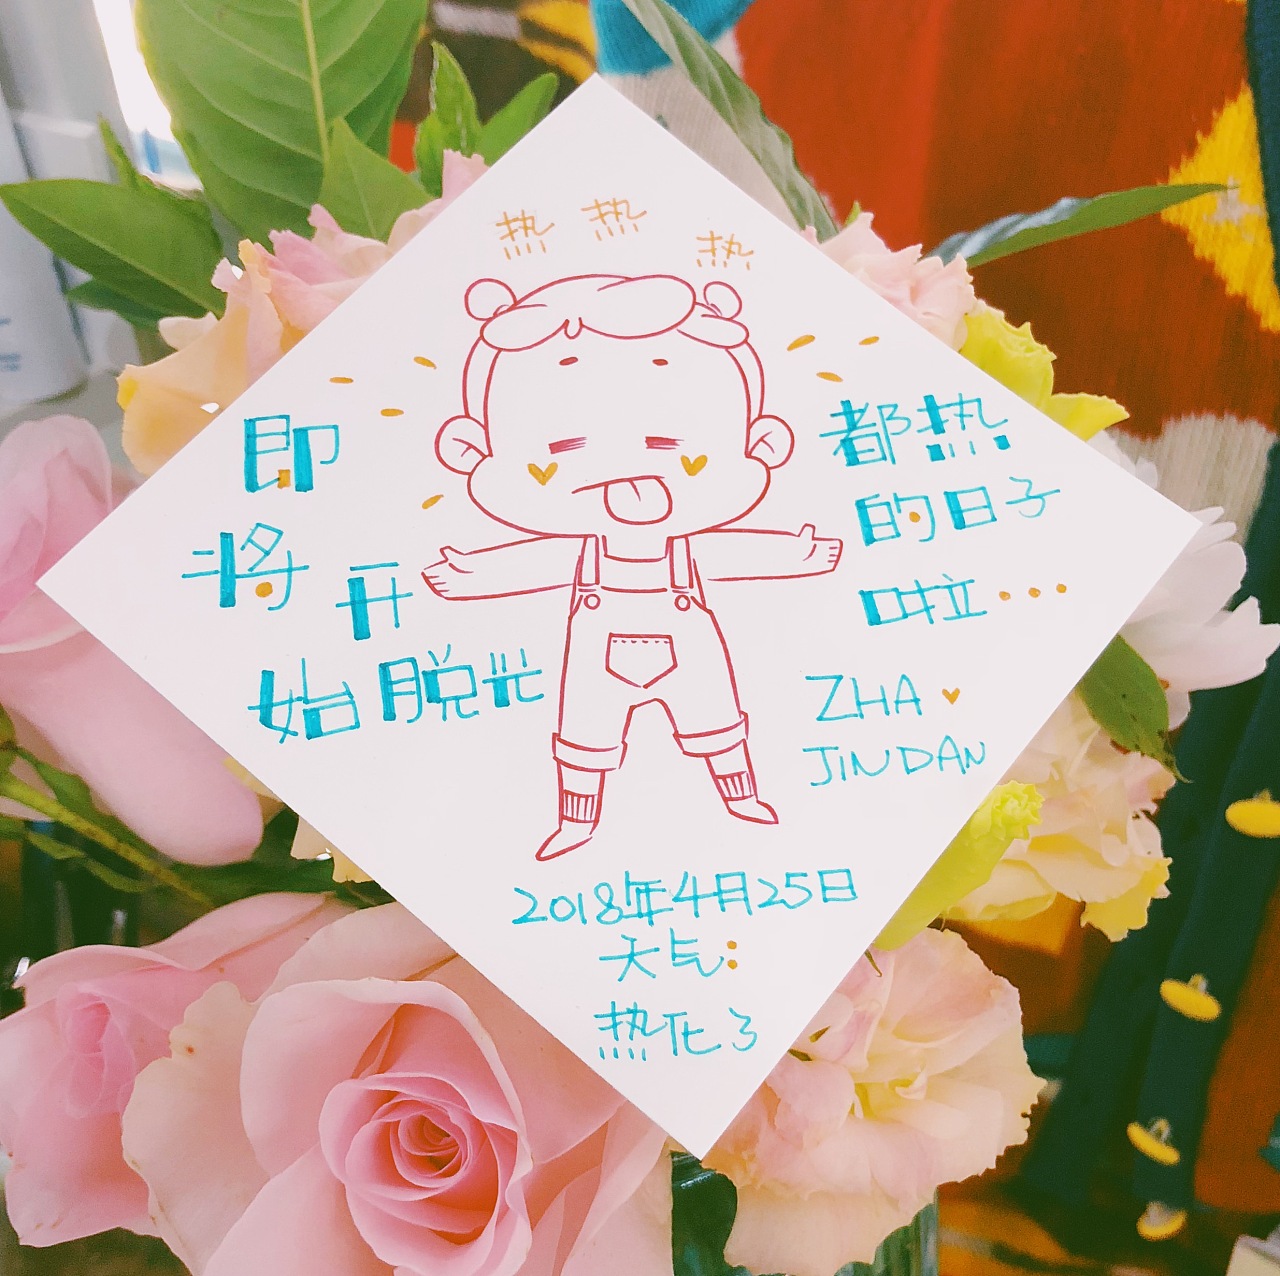 热 热 热
即
将 开
始脱光
都热
的日子
啦...
ZHA
JINDAN
2018年4月25日
天气:
热化了